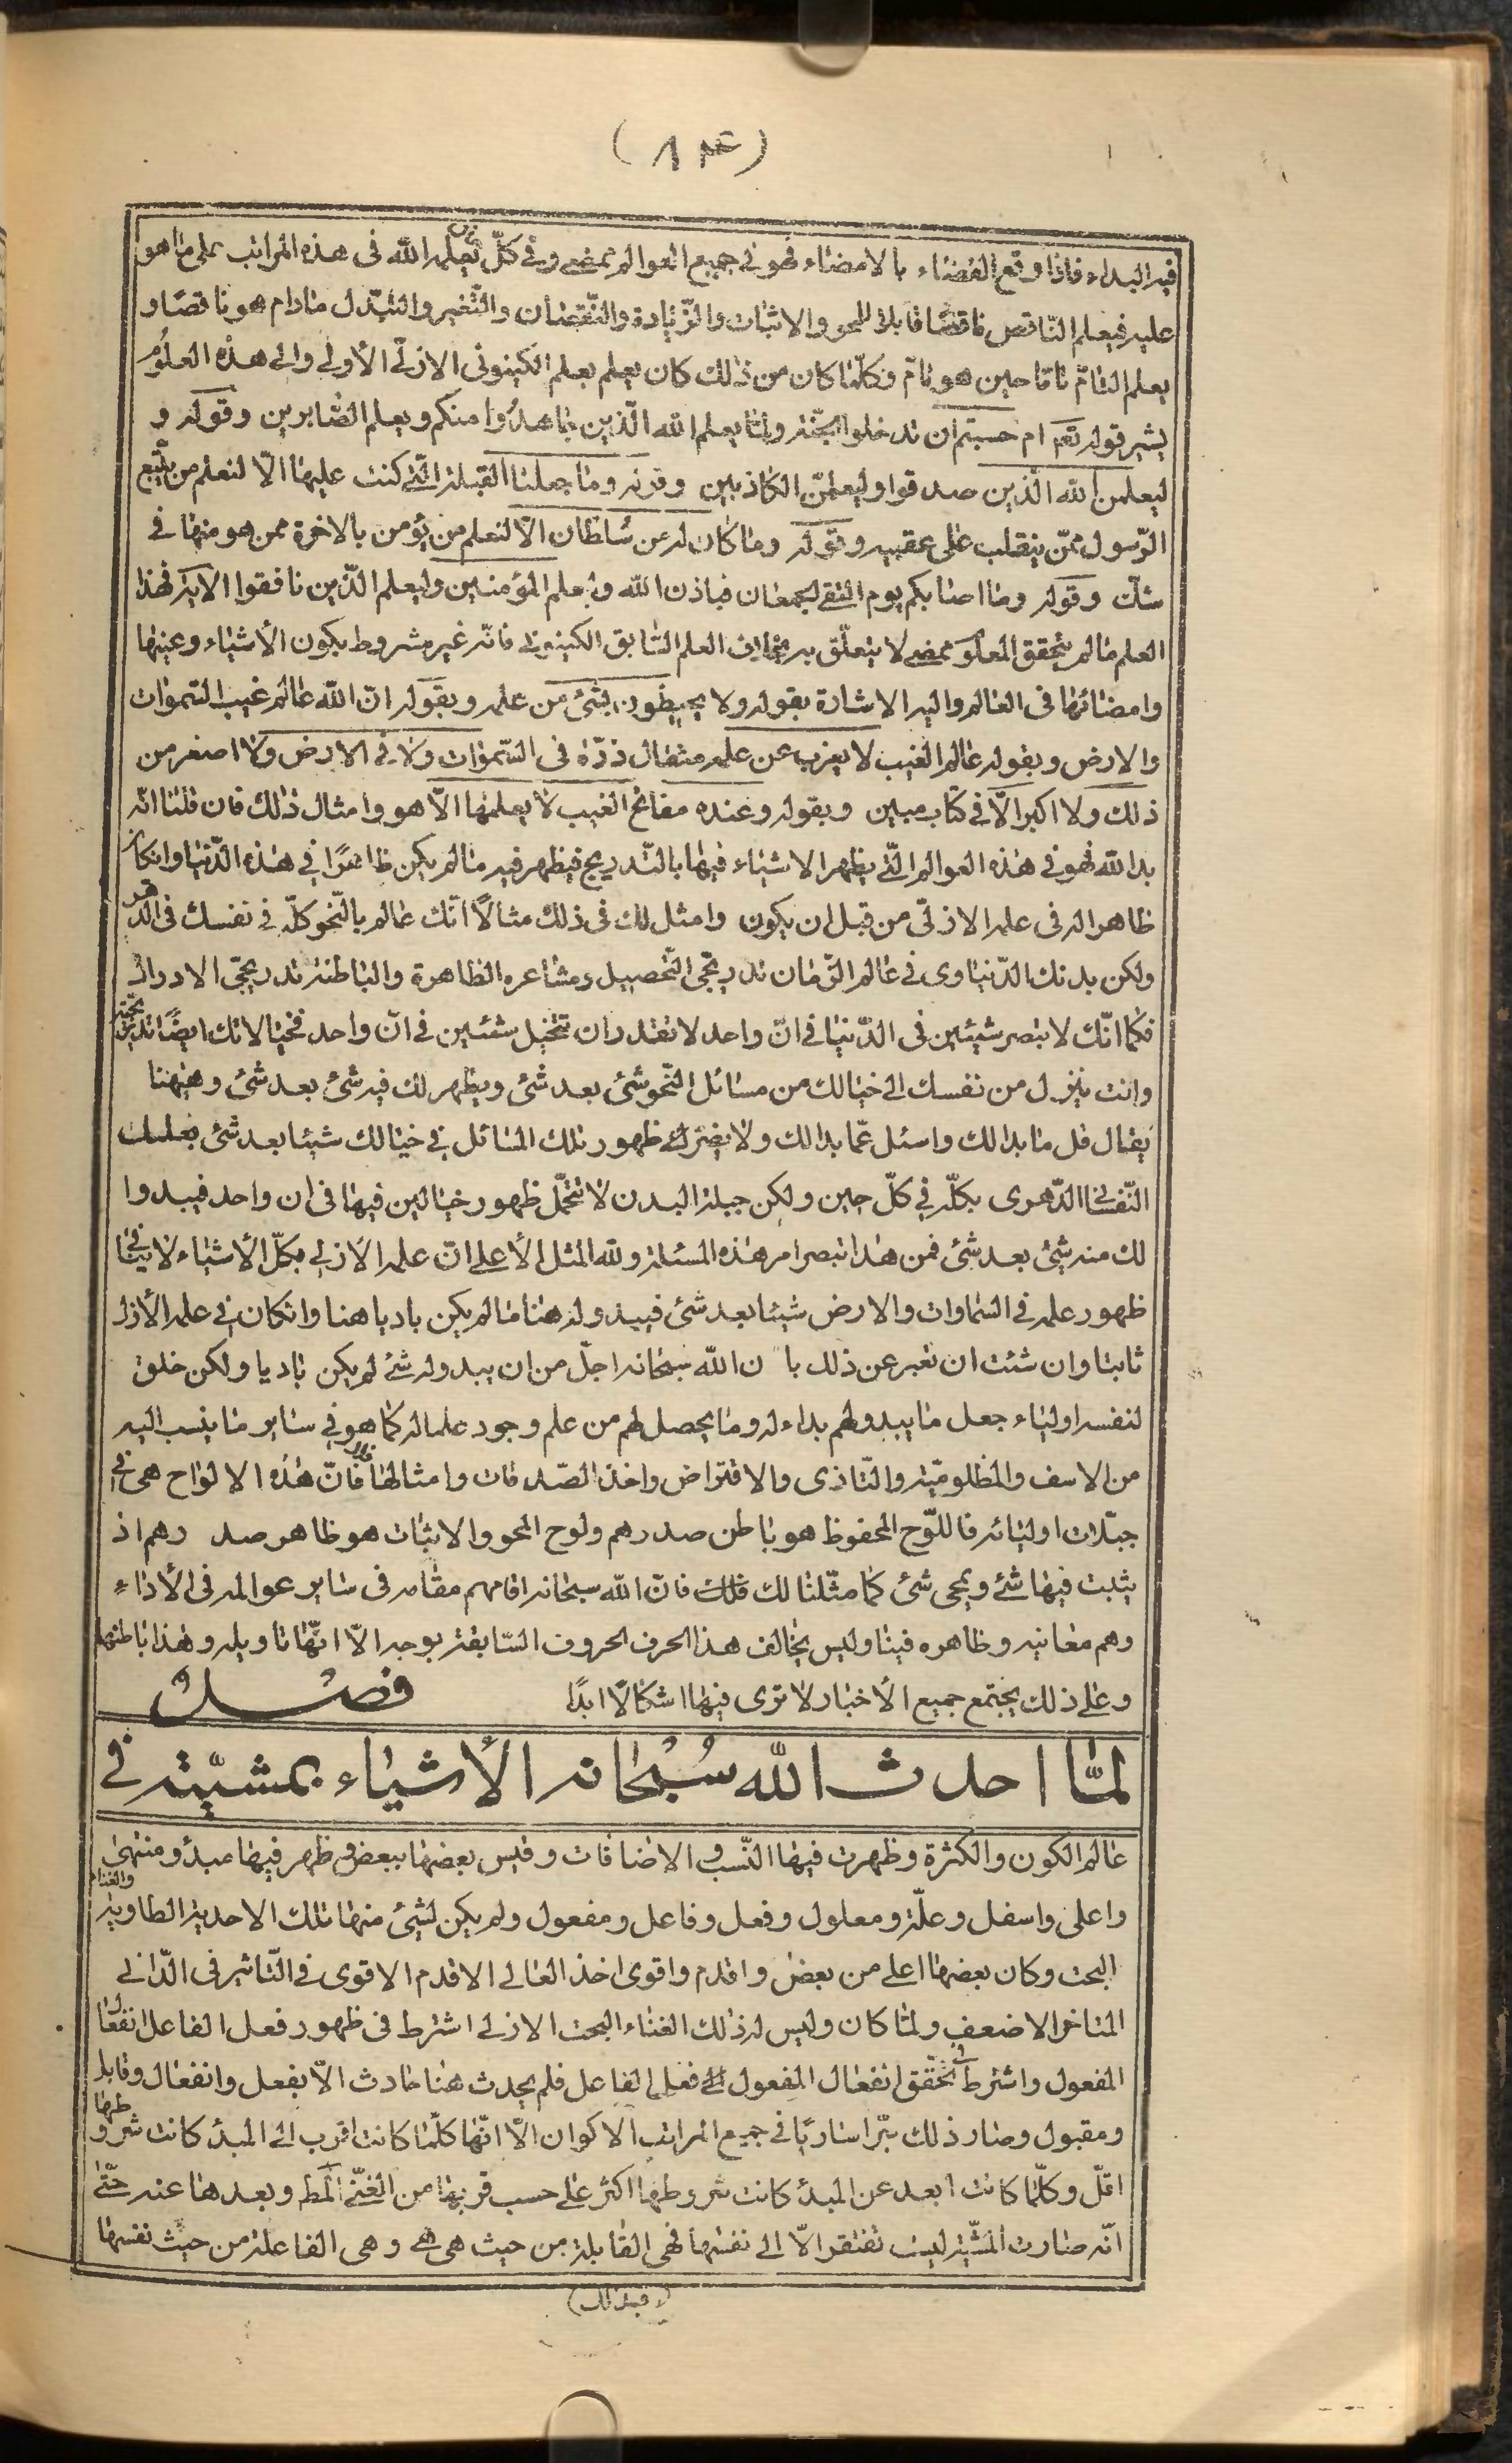 (٨٣)
فيه البداء فاذا وقع القضاء بالامضاء فهو فى جميع العوالم ممضى وفى كلّ يعلمه الله فى هذه المراتب على ما هو
عليه فيعلم النّاقص ناقصًا قابلا للمحو والاثبات والزّيادة والنّقصان والتّغير والتبدّل مادام هو ناقصًا و
يعلم التامّ تاما حين هو تامّ وكلّما كان من ذلك كان يعلم بعلم الكينونى الازلىّ الأولى والى هذه العلوم
يشير قوله تعم ام حسبتم ان تدخلوا الجنّة ولمّا يعلم الله الّذين جاهدُوا منكم ويعلم الصّابرين وقوله و
ليعلمن الله الّذين صدقوا وليعلمنّ الكاذبين وقوله وما جعلنا القبلة الّتى كنت عليها الّا لنعلم من يتّبع
الرّسول ممّن ينقلب على عقبيه وقوله وما كان له من سُلطان الّا لنعلم من يؤمن بالاخرة ممن هو منها فى
شك وقوله وما اصابكم يوم التقى الجمعان فباذن الله وليعلم المؤمنين وليعلم الّذين نافقوا الاية فهذا
العلم مالم يتحقق المعلوم ممضى لا يتعلّق به بخلاف العلم السّابق الكينونى فانّه غير مشروط بكون الأشياء وعينها
وامضائها فى العالم واليه الاشارة بقوله ولا يحيطون بشئ من علمه وبقوله انّ الله عالم غيب السّموات
والارض وبقوله عالم الغيب لا يعزب عن علمه مثقال ذرّة فى السّموات ولا فى الارض ولا اصغر من
ذلك ولا اكبر الّا فى كتاب مبين وبقوله وعنده مفاتح الغيب لا يعلمها الّا هو وامثال ذلك فان قلنا انّه
بدا لله فهو فى هذه العوالم الّتى يظهر الاشياء فيها بالتّدريج فيظهر فيه مالم يكن ظاهرًا فى هذه الدّنيا وانكان
ظاهرا له فى علمه الازلىّ من قبل ان يكون وامثل لك فى ذلك مثالًا انّك عالم بالنّحو كلّه فى نفسك فى الدّهر
ولكن بدنك الدّنياوى فى عالم الزّمان تدريجى التّحصيل ومشاعره الظاهرة والباطنة تدريجىّ الادراك
فكما انّك لا تبصر شيئين فى الدّنيا فى انّ واحد لا تقدر ان تتخيل شيئين فى انّ واحد فخيالاتك ايضًا تدريجية
وانت ينزل من نفسك الى خيالك من مسائل النّحو شئ بعد شئ ويظهر لك فيه شئ بعد شئ وههنا
يقال قل ما بدا لك واسئل عمّا بدا لك ولا يضرّك ظهور تلك المسائل فى خيالك شيئا بعد شئ بعلمك
النّفسانى الدّهرى بكلّه فى كلّ حين ولكن جبلة البدن لا تتحمّل ظهور خيالين فيها فى ان واحد فيبدوا
لك منه شئ بعد شئ فمن هذا تبصر امر هذه المسئلة ولله المثل الأعلى انّ علمه الأزلى بكلّ الأشياء لا ينافى
ظهور علمه فى السّماوات والارض شيئا بعد شئ فيبدو له هنا مالم يكن باديا هنا وانكان فى علمه الأزل
ثابتا وان شئت ان تعبر عن ذلك بان الله سبحانه اجلّ من ان يبدو له شئ لم يكن باديا ولكن خلق
لنفسه اولياء جعل ما يبدو لهم بداء له وما يحصل لهم من علم وجود علما له كما هو فى ساير ما ينسب اليه
من الاسف والمظلوميّة والتّاذى والاقتراض واخذ الصّدقات وامثالها فانّ هذه الالواح هى فى
جبلّات اوليائه فاللّوح المحفوظ هو باطن صدرهم ولوح المحو والاثبات هو ظاهر صدرهم اذ
يثبت فيها شئ ويمحى شئ كما مثّلنا لك فلك فانّ الله سبحانه اقامهم مقامه فى ساير عوالمه فى الأداء
وهم معانيه وظاهره فينا وليس يخالف هذا الحرف الحروف السّابقة بوجه الّا انّها تاويله وهذا باطنها
وعلى ذلك يجتمع جميع الأخبار لا ترى فيها اشكالًا ابدًا فصل
لمّا احدث الله سُبحانه الأشياء بمشيّته فى
عالم الكون والكثرة وظهرت فيها النّسب والاضافات وقيس بعضها ببعض ظهر فيها مبدؤ ومنتهى
واعلى واسفل وعلّة ومعلول وفعل وفاعل ومفعول ولم يكن لشئ منها تلك الاحدية الطاوية والغناء
البحت وكان بعضها اعلى من بعض واقدم واقوى اخذ العالى الاقدم الاقوى فى التّاثير فى الدّانى
المتاخر الاضعف ولمّا كان وليس له ذلك الغناء البحت الازلى اشترط فى ظهور فعل الفاعل انفعال
المفعول واشترط فى تحقق انفعال المفعول فعل الفاعل فلم يحدث هنا حادث الّا بفعل وانفعال وقابل
ومقبول وصار ذلك سرّا ساريًا فى جميع المراتب الاكوان الّا انّها كلّما كانت اقرب الى المبدء كانت شروطها
اقلّ وكلّما كانت ابعد عن المبدء كانت شروطها اكثر على حسب قربها من الغنىّ المط وبعدها عنه حتّى
انّه صارت المشيّة ليست تفتقر الّا الى نفسها فهى القابلة من حيث هى هى وهى الفاعلة من حيث نفسها